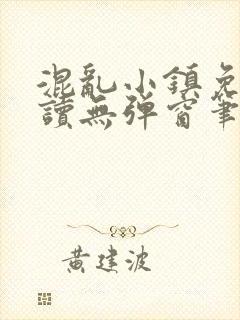 混亂小鎮免
讀無彈窗筆
黃建波